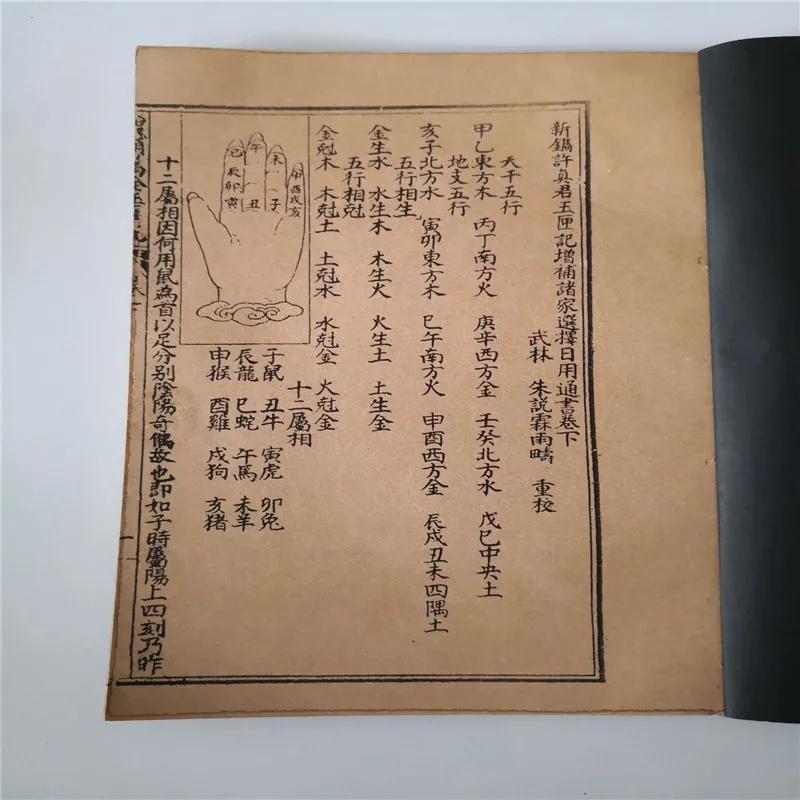 新鐫許真君玉匣記增補諸家選擇日用通書卷下
武林 朱説霖雨疇 重校
天干五行
甲乙東方木 丙丁南方火 庚辛西方金 壬癸北方水 戊巳中央土
地支五行
亥子北方水 寅卯東方木 巳午南方火 申酉西方金 辰戌丑未四隅土
五行相生
金生水 水生木 木生火 火生土 土生金
五行相剋
金剋木 木剋土 土剋水 水剋金 火剋金
十二屬相
子鼠 丑牛 寅虎 卯兔
辰龍 巳蛇 午馬 未羊
申猴 酉雞 戌狗 亥猪
申酉戌亥
未 子
午 丑
巳辰卯寅
十二屬相因何用鼠為首以足分別陰陽奇偶故也即如子時屬陽上四刻乃昨